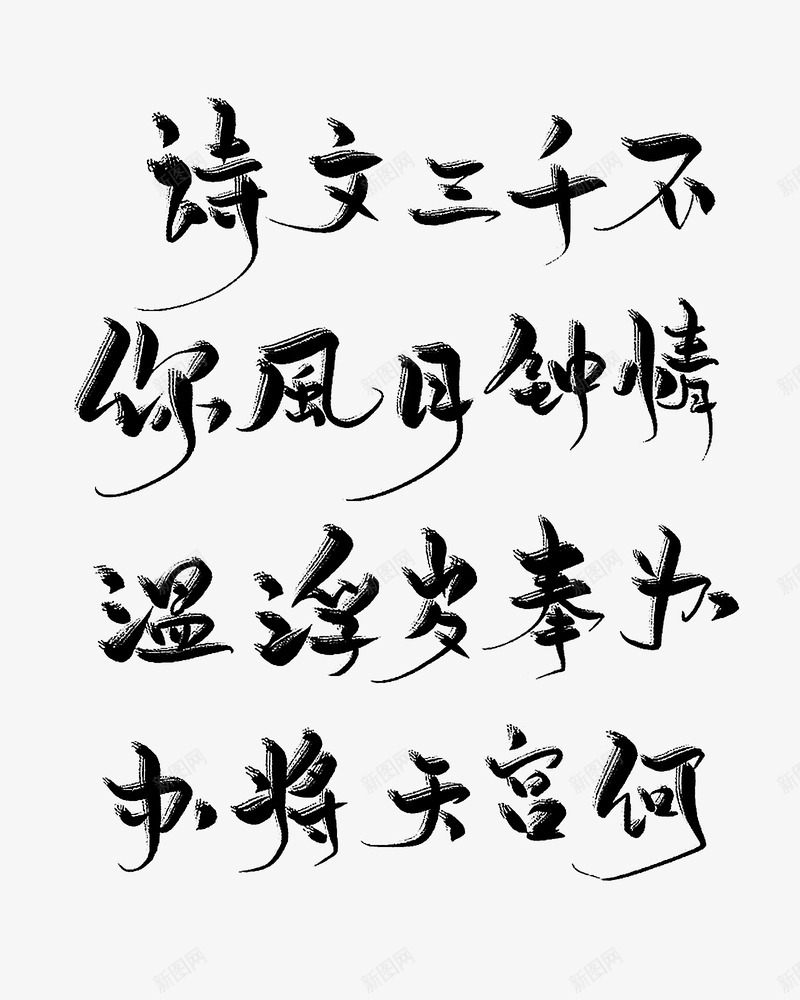 詩文三千不
你風月钟情
温浮岁奉
办将天宫何
新图网